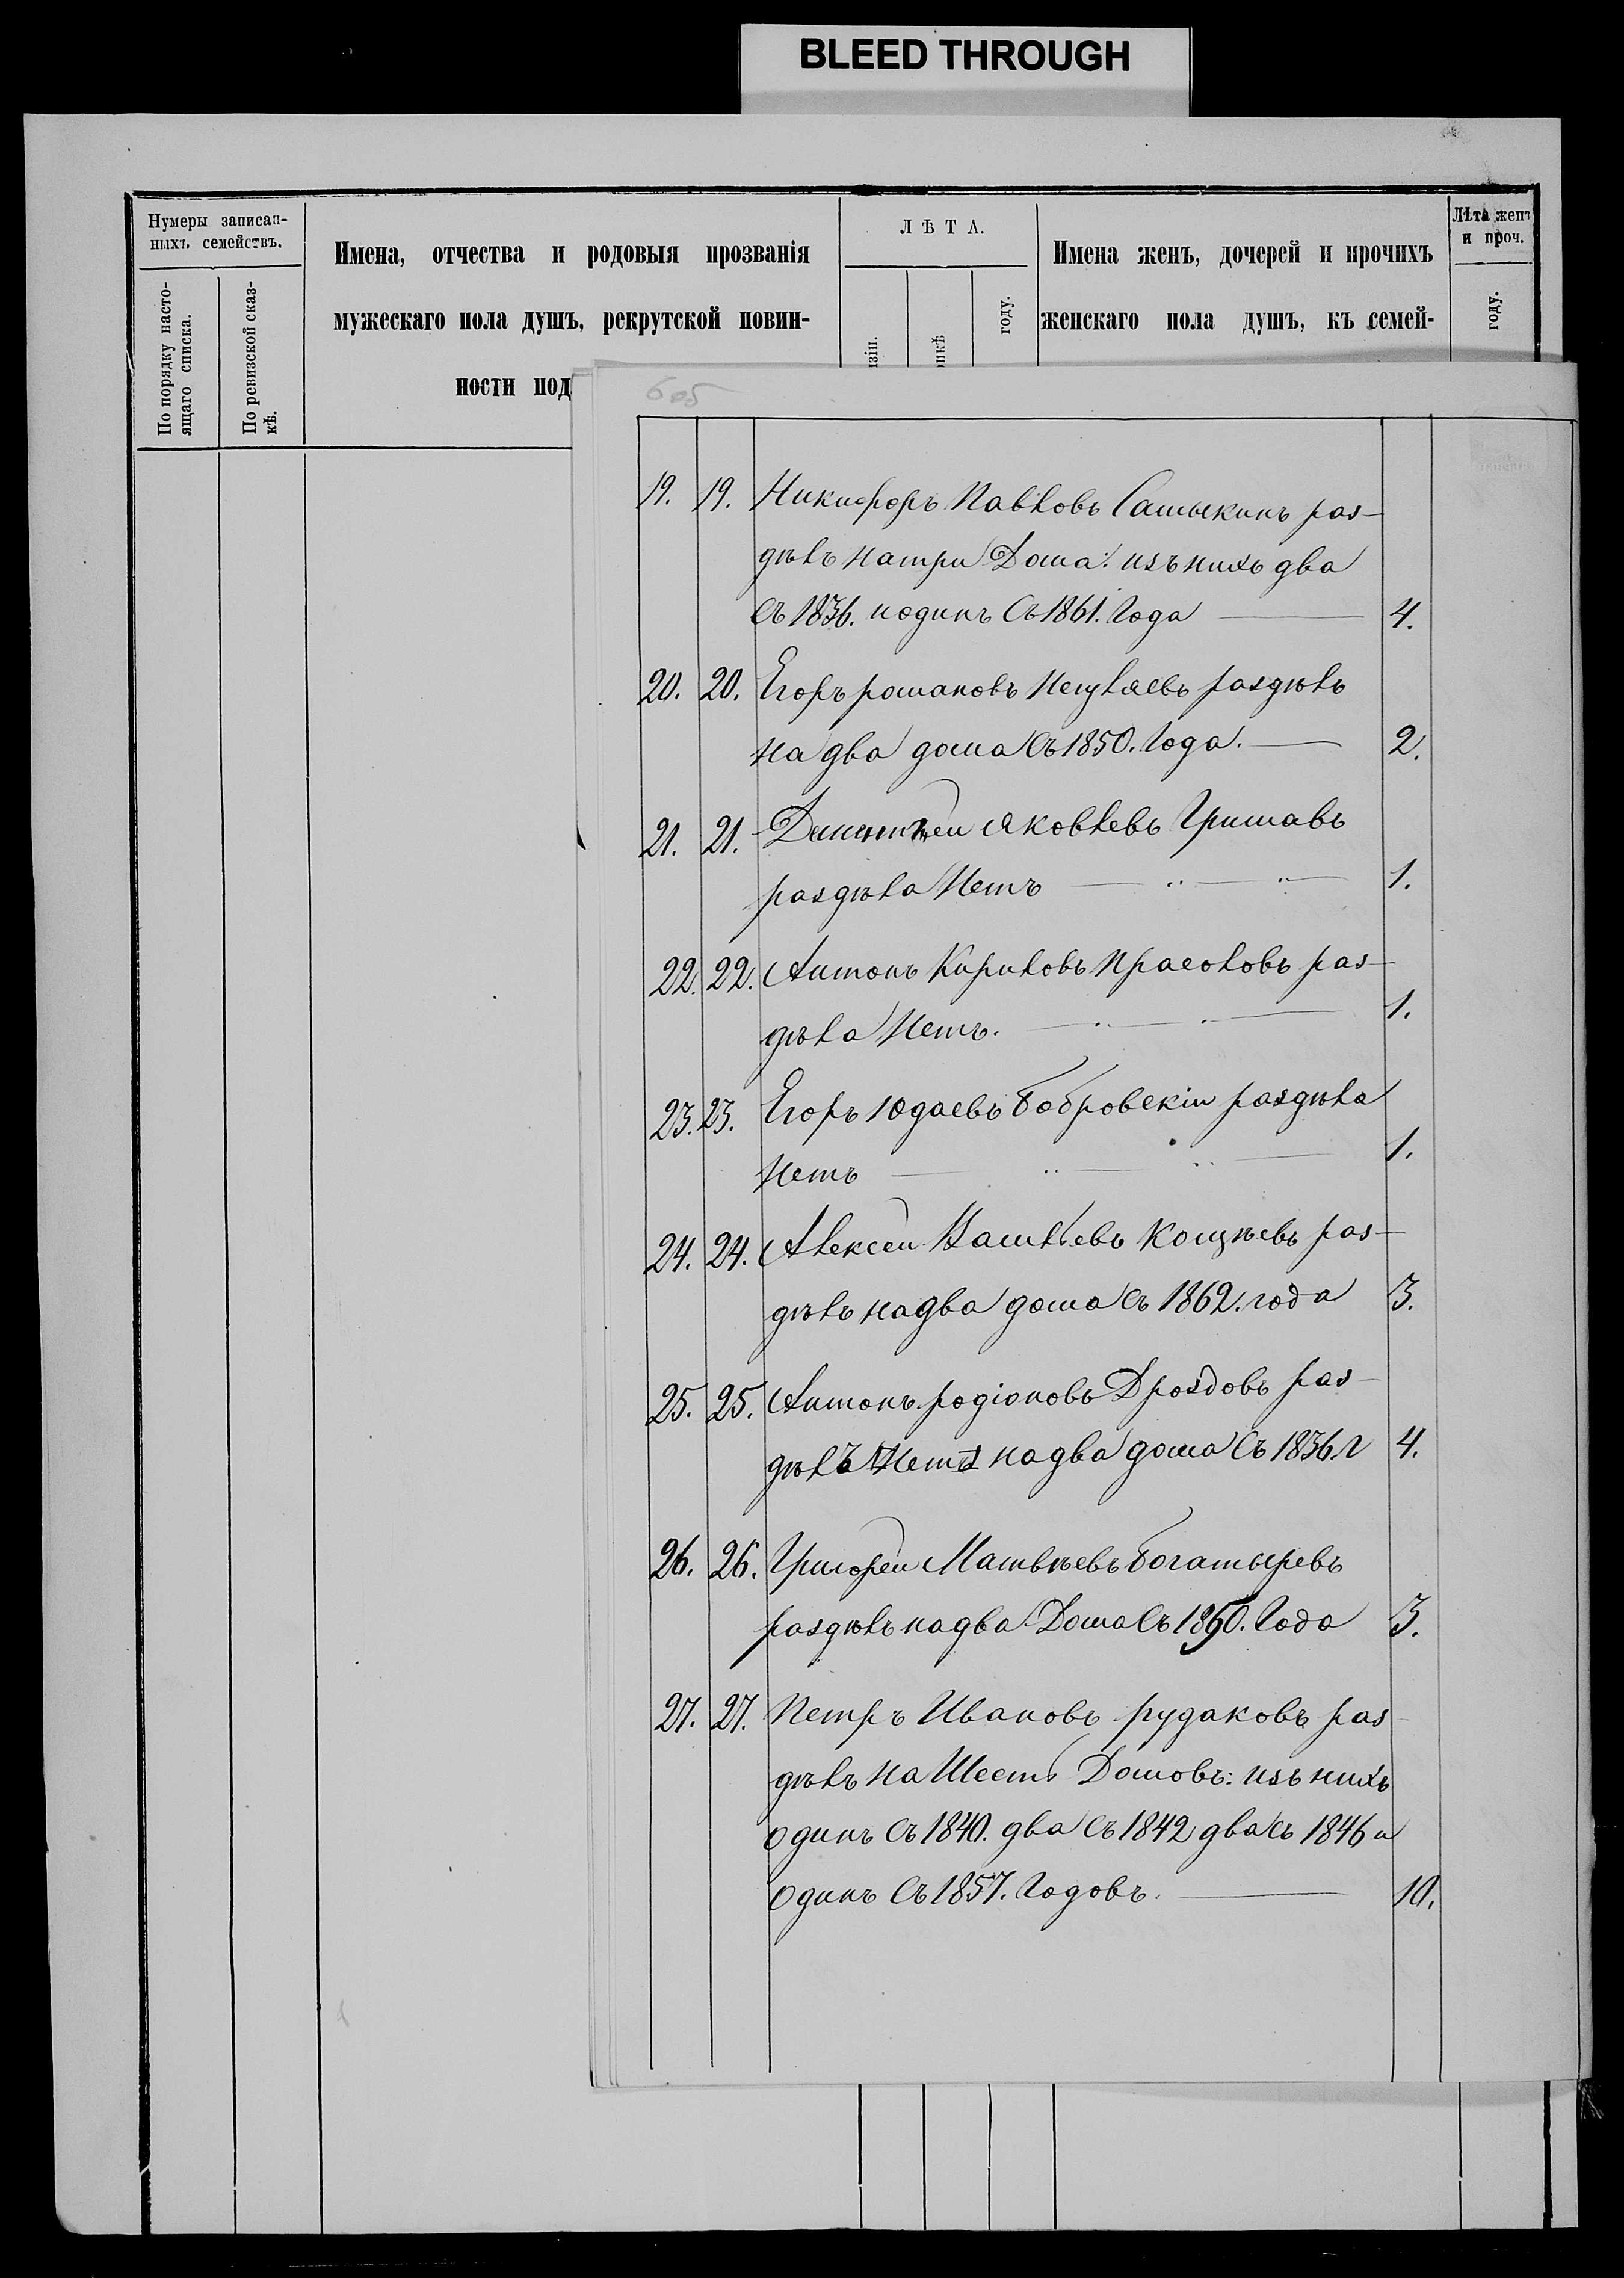 BLEED THROUGH
Нумеры записан-
ныхъ семействъ.
По порядку насто-
ящаго списка.
По ревизской сказ-
кѣ.
Имена, отчества и родовыя прозванія
мужескаго пола душъ, рекрутской повин-
ности под
ЛѢТА.
году.
Имена женъ, дочерей и прочихъ
женскаго пола душъ, къ семей-
Лѣта женъ
и проч.
году.
605
19. 19. Никифоръ Павловъ Самыкинъ раз-
дѣлъ натри Дома: изъ нихъ два
съ 1836. иодинъ Съ 1861. Года 4.
20. 20. Егоръ романовъ раздѣлъ
на два дома Съ 1850. Года. 2.
21. 21. Дементей Яковлевъ Гришавъ
раздѣла Нетъ 1.
22. 22. Антонъ Кириловъ Прасоловъ раз-
дѣла Нетъ. 1.
23. 23. Егоръ Юдаевъ Бобровскіи раздѣла
Нетъ 1.
24. 24. Алексеи Васильевъ Кощѣевъ раз-
дѣлъ надва дома Съ 1862. года 3.
25. 25. Антонъ родіоновъ Дроздовъ раз-
дѣлЪ Нетъ надва дома Съ 1836. г 4.
26. 26. Григореи Матвѣевъ Богатыревъ
раздѣлъ надва Дома Съ Года 3.
27. 27. Петръ Ивановъ рудаковъ раз
дѣлъ на Шесть Домовъ: изъ нихъ
одинъ Съ 1840. два Съ 1842 два съ 1846 и
Одинъ Съ 1857. Годовъ. 10.